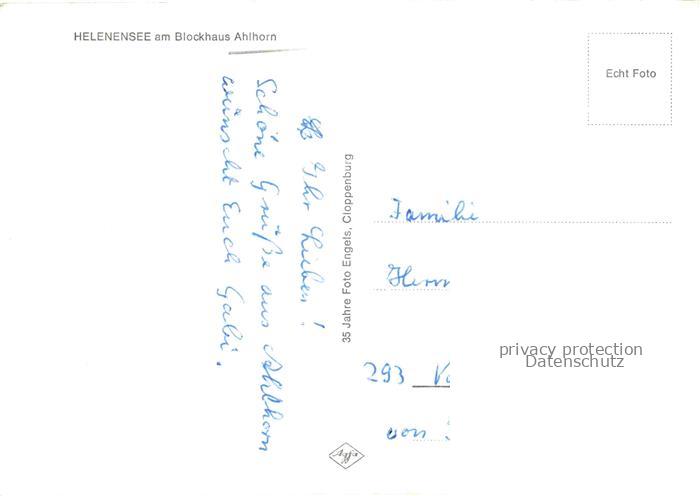 HELENENSEE am Blockhaus Ahlhorn
Echt Foto
Ihr Lieben!
Schöne Grüße aus Ahlhorn
wünscht Euch Gabi.
35 Jahre Foto Engels, Cloppenburg
Familie
Herm
293
von
privacy protection
Datenschutz
Agfa